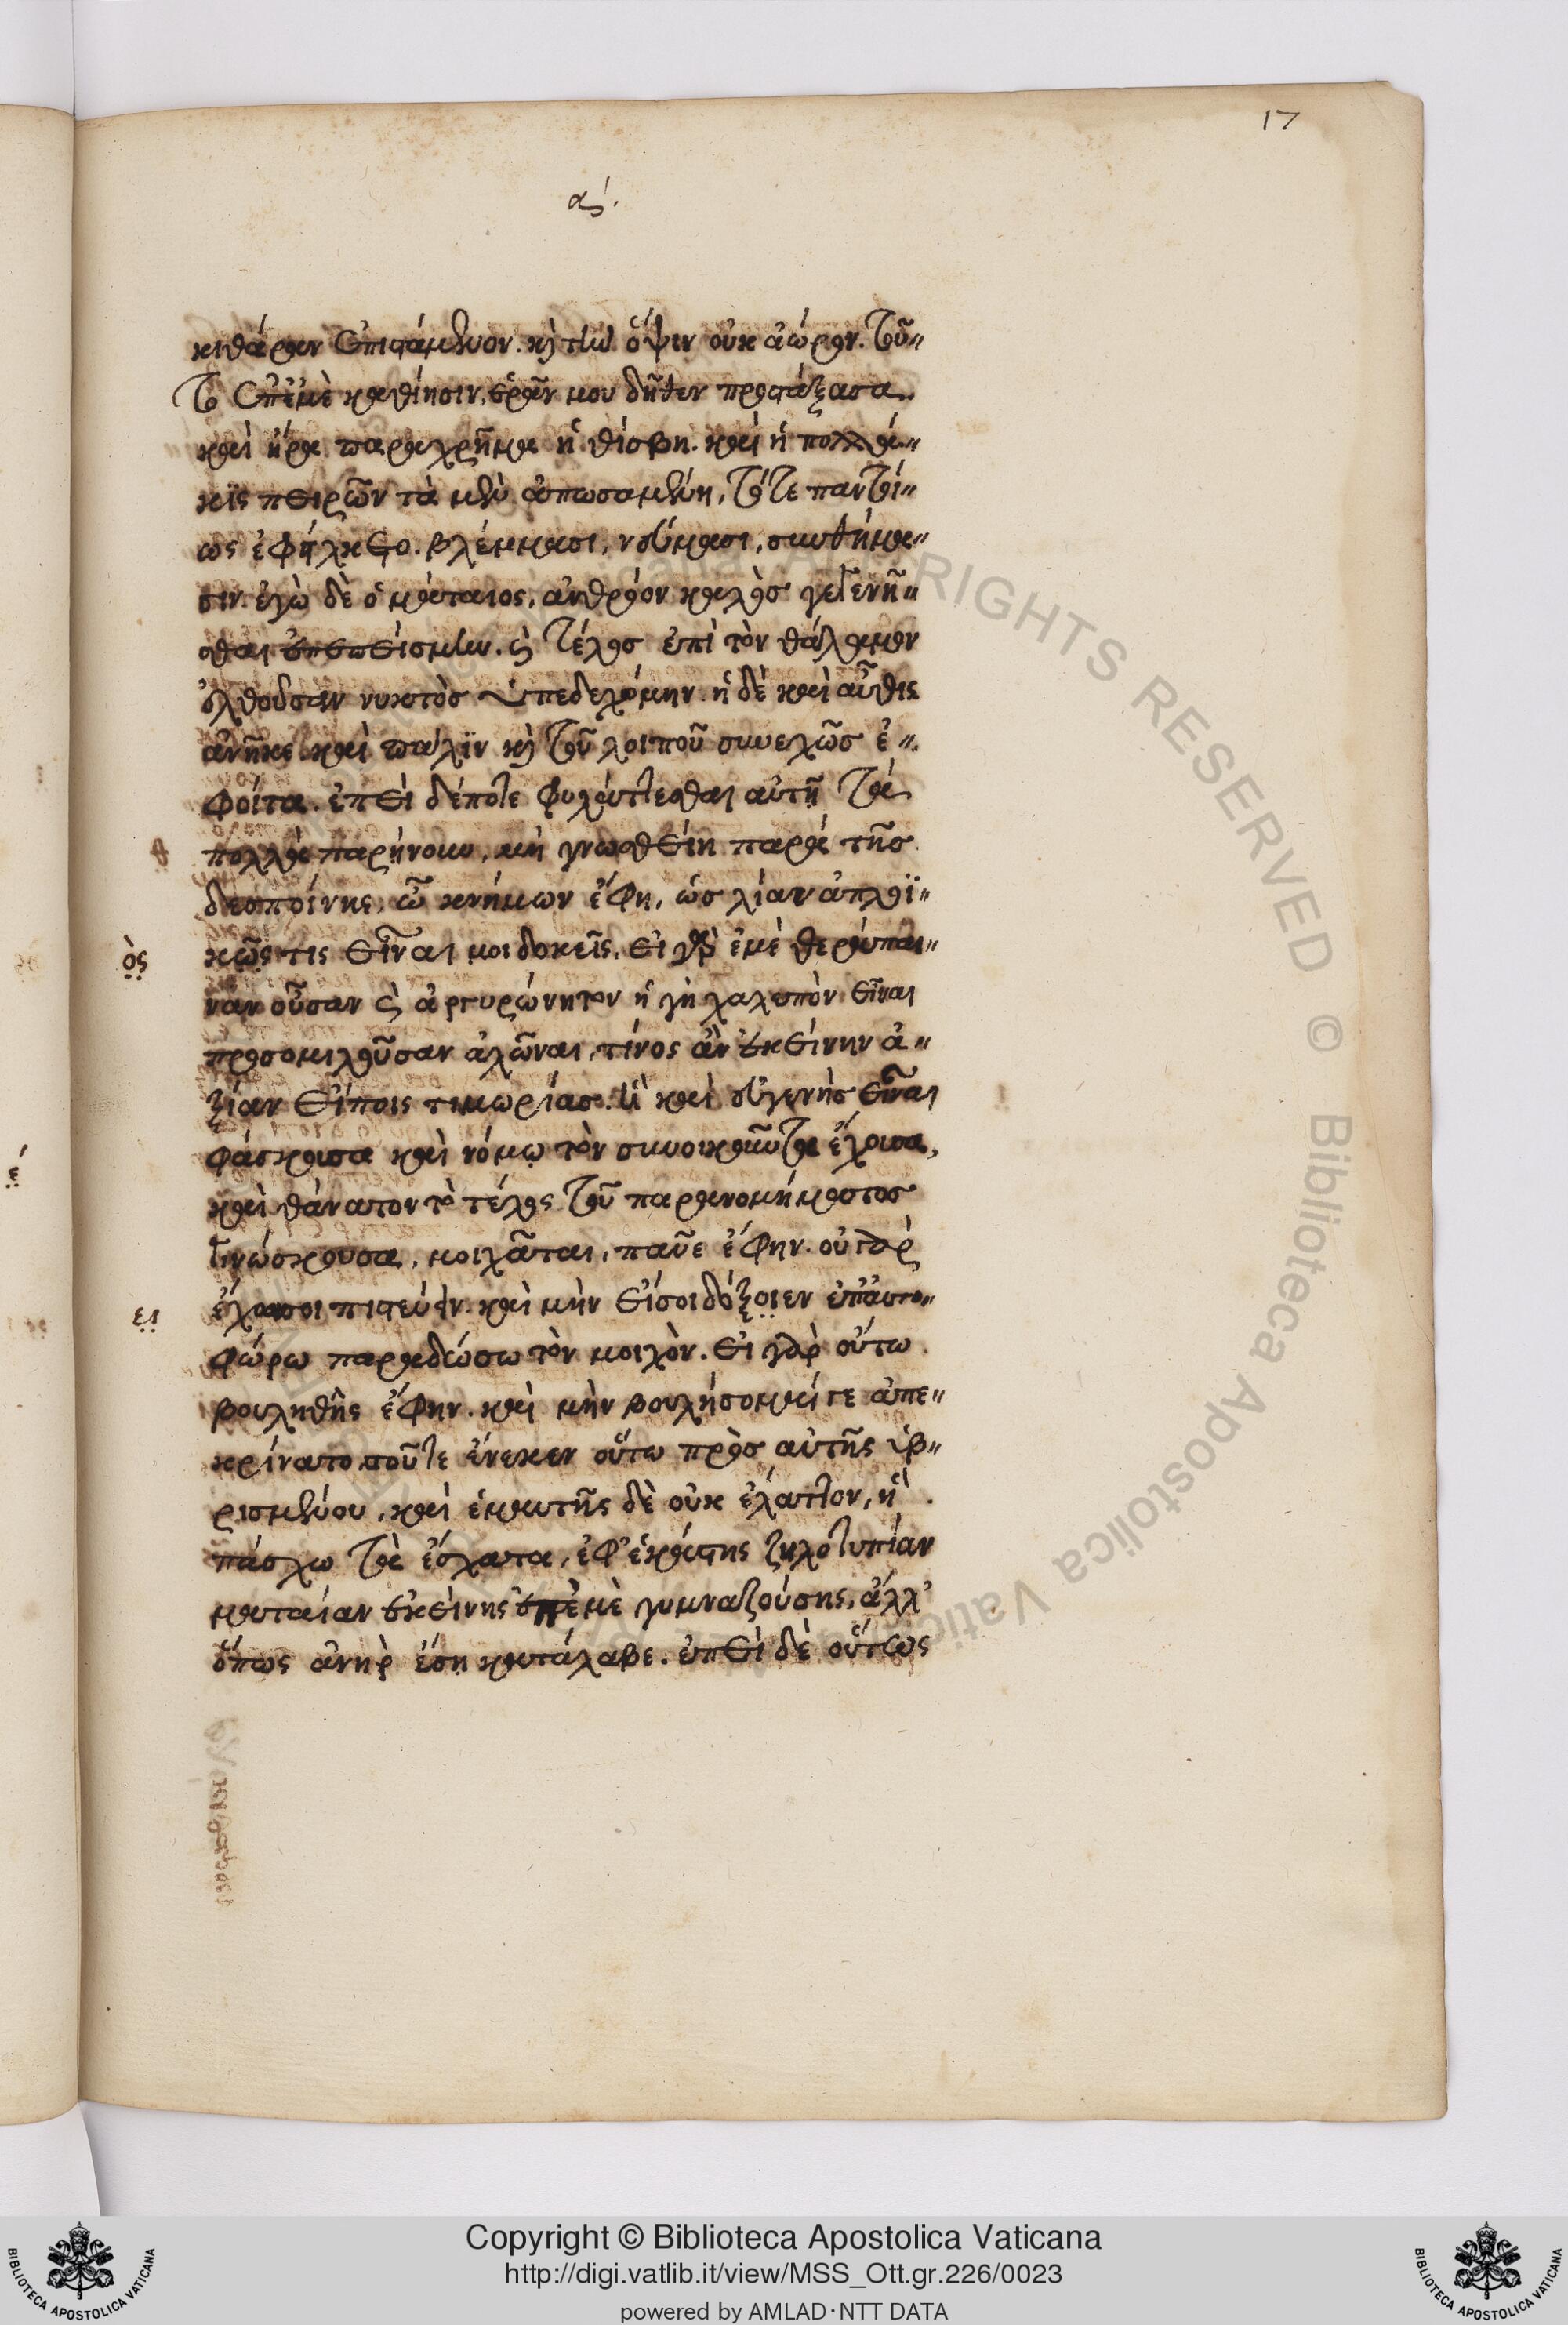 17
αʹ.
κιθάραν ἐπιστάμενον. καὶ τὴν ὄψιν οὐκ ἀώρον. τοῦ〃
το ἐπ' ἐμὲ καθίησιν, ἐρᾶν μου δῆθεν προστάξασα.
καὶ ἤρα παραχρῆμα ἡ θίσβη. καὶ ἡ πολλά〃
κις πειρῶντά μὲν ἀπωσαμένη, τότε παντοί〃
ως ἐφήλκετο. βλέμμασι, νεύμασι, συνθήμα〃
σιν. ἐγὼ δὲ ὁ μάταιος, ἀνθρόον καλὸσ γεγενῆ〃
σθαι ἐπεπείσμην. καὶ τέλοσ ἐπὶ τὸν θάλαμον
ἐλθοῦσαν νυκτὸσ ὑπεδεχόμην. ἡ δὲ καὶ αὖθις
ἀνῆκε. καὶ πάλϊν καὶ τοῦ λοιποῦ συνεχῶσ ἐ〃
φοίτα. ἐπεὶ δέποτε φυλάττεσθαι αὐτῆ τὰ
πολλὰ παρήνουν, μὴ γνωσθείη παρὰ τῆσ
δεσποίνης, ὦ κνήμων ἔφη, ὡσ λίαν ἁπλοϊ〃
ὸς
κῶς τις εἶναι μοι δοκεῖς. εἰ γὰρ ἐμὲ θεράπαι〃
ναν οὖσαν καὶ ἀργυρώνητον ἡγῆ χαλεπὸν εἶναι
προσομιλοῦσαν ἁλῶναι, τίνος ἂν ἐκείνην ἀ〃
ξίαν εἴποις τιμωρίασ. ἢ καὶ εὐγενὴσ εἶναι
φάσκουσα καὶ νόμῳ τὸν συνοικοῦντα ἔχουσα,
καὶ θάνατον τὸ τέλος τοῦ παρανομήματοσ
γινώσκουσα, μοιχᾶται, παῦε ἔφην. οὐ γὰρ
ει
ἔχω σοι πιστεύειν. καὶ μὴν εἴ σοι δόξοιεν ἐπ' αὐτο〃
φώρω παραδώσω τὸν μοιχὸν. εἰ γὰρ οὕτω
βουληθῆς ἔφην. καὶ μὴν βουλήσομαί γε ἀπε〃
κρίνατο. σοῦ τε ἕνεκεν οὕτω πρὸσ αὐτῆς ὑβ〃
ρισμένου, καὶ ἐμαυτῆς δὲ οὐκ ἔλαττον, ἣ
πάσχω τὰ ἔσχατα, ἐφ' ἑκάστης ζηλοτυπίαν
ματαίαν ἐκείνης ἐπ' ἐμὲ γυμναζούσης, ἀλλ'
ὅπως ἀνὴρ ἔσῃ κατάλαβε. ἐπεὶ δὲ οὕτως
Copyright © Biblioteca Apostolica Vaticana
http://digi.vatlib.it/view/MSS_Ott.gr.226/0023
powered by AMLAD·NTT DATA